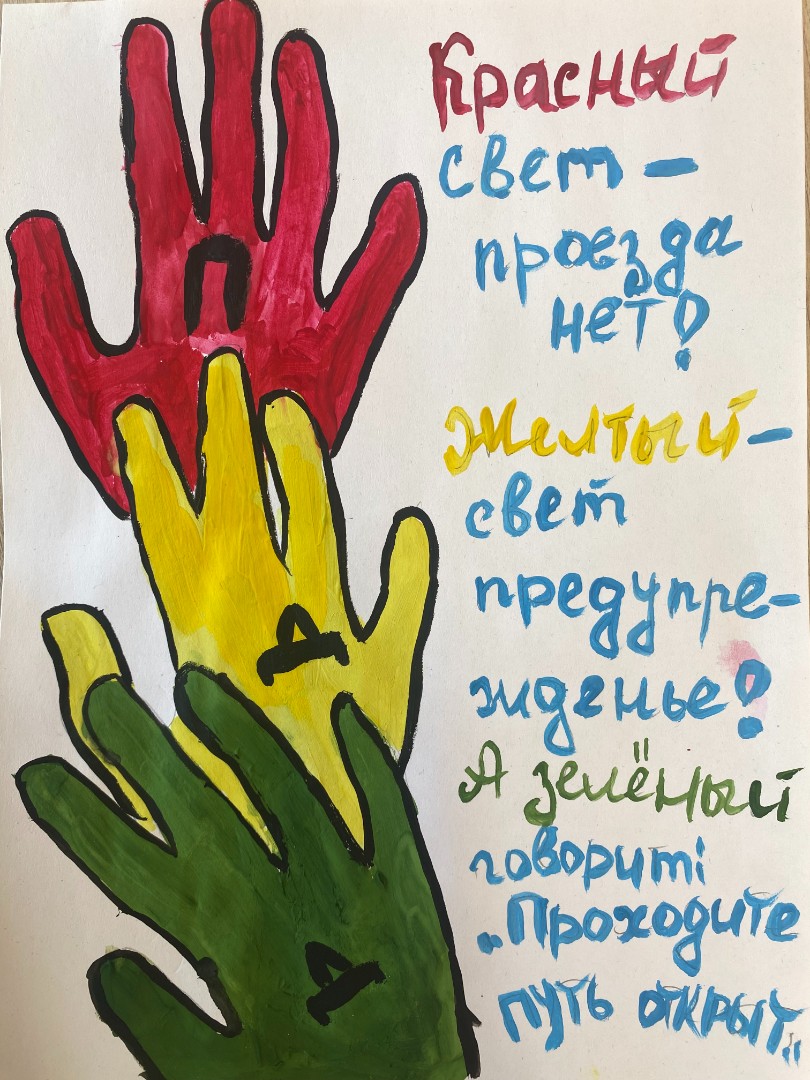 П
Д
Д
Красный
свет –
проезда
нет!
Желтый –
свет
предупре-
жденье!
А зелёный
говорит:
„Проходите
путь открыт„